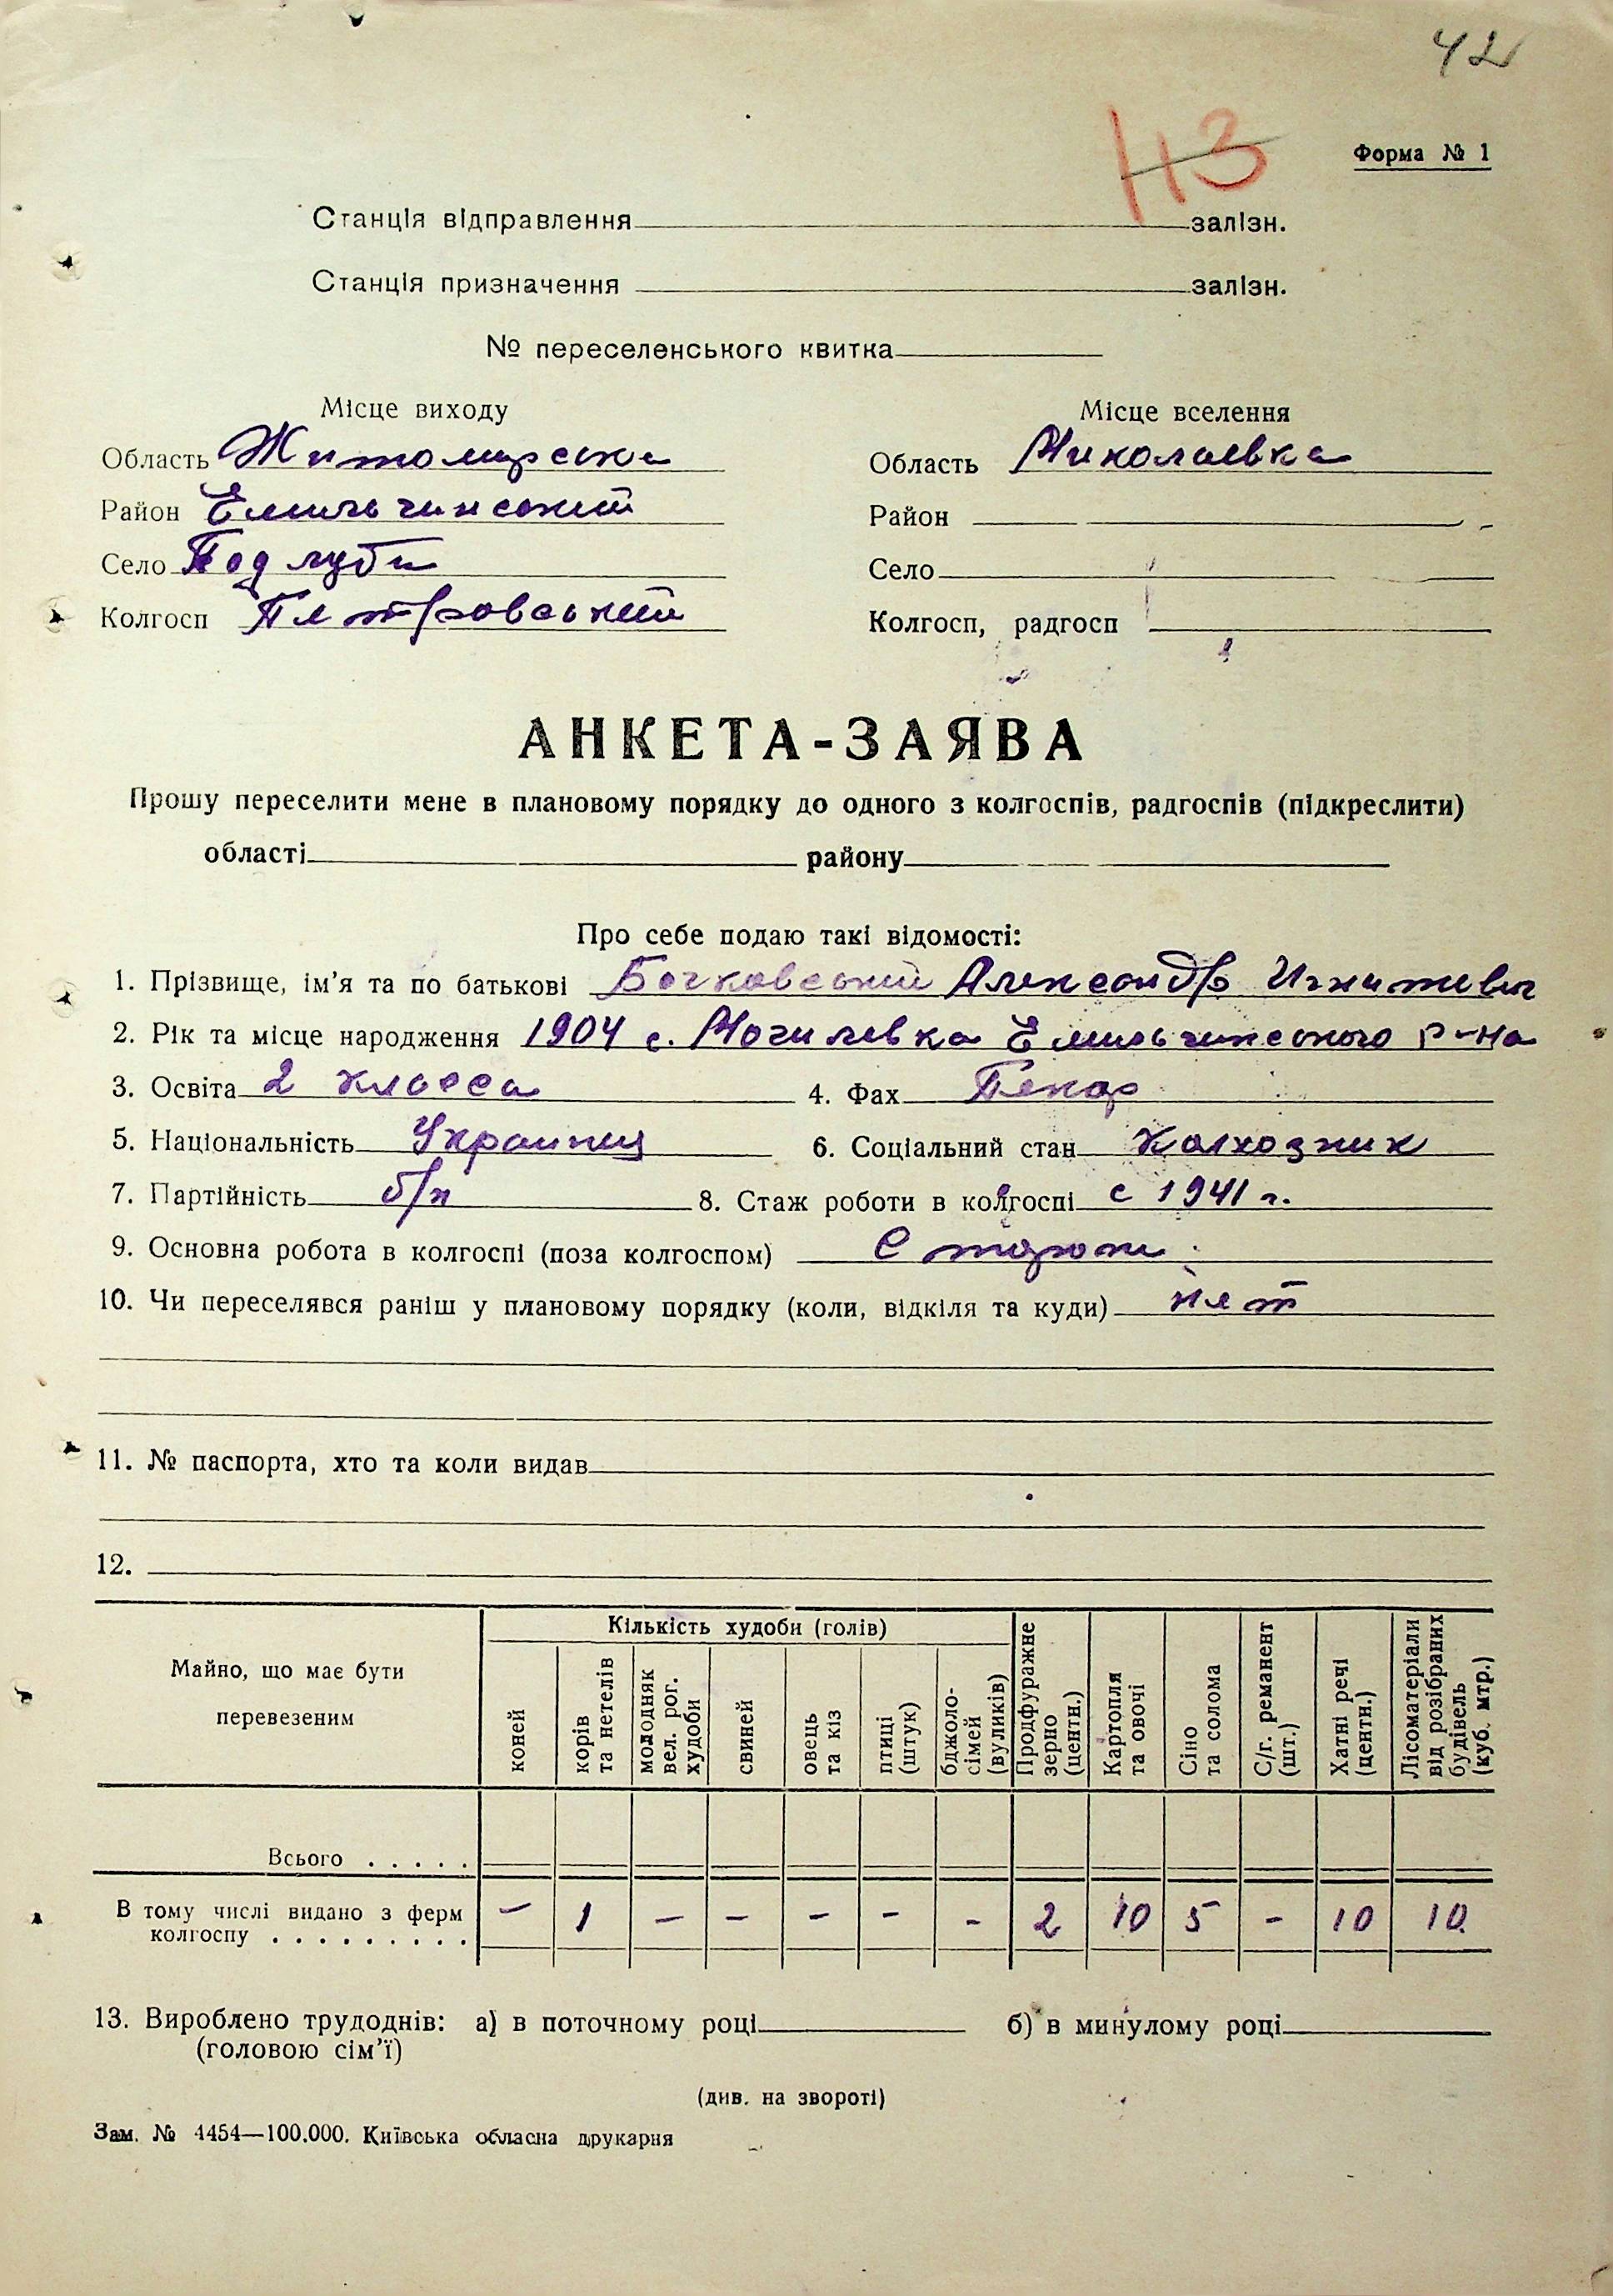 42
113
Форма № 1
Станція відправлення залізн.
Станція призначення залізн.
№ переселенського квитка
Місце виходу Місце вселення
Область Житомирська Область Миколаевка
Район Емильчинський Район
Село Подлуби Село
Колгосп Петровський Колгосп, радгосп
АНКЕТА-ЗАЯВА
Прошу переселити мене в плановому порядку до одного з колгоспів, радгоспів (підкреслити)
області району
Про себе подаю такі відомості:
1. Прізвище, ім'я та по батькові Бочковський Александр Игнатевич
2. Рік та місце народження 1904 с. Могилевка Емильчинського р-на
3. Освіта 2 класса 4. Фах Пекар
5. Національність Украинец 6. Соціальний стан колхозник
7. Партійність б/п 8. Стаж роботи в колгоспі с 1941 г.
9. Основна робота в колгоспі (поза колгоспом)
10. Чи переселявся раніш у плановому порядку (коли, відкіля та куди) нет
11. № паспорта, хто та коли видав
12.
Майно, що має бути перевезеним
Кількість худоби (голів)
коней
корів та нетелів
молодняк вел. рог. худоби
свиней
овець та кіз
птиці (штук)
бджоло-сімей (вуликів)
Продфуражне зерно (центн.)
Картопля та овочі
Сіно та солома
С/г. реманент (шт.)
Хатні речі (центн.)
Лісоматеріали від розібраних будівель (куб. мтр.)
Всього . . . . .
В тому числі видано з ферм колгоспу . . . . . . . . . – 1 – – – – – 2 10 5 – 10 10
13. Вироблено трудоднів: а) в поточному році б) в минулому році
(головою сім'ї)
(див. на звороті)
Зам. № 4454—100.000. Київська обласна друкарня